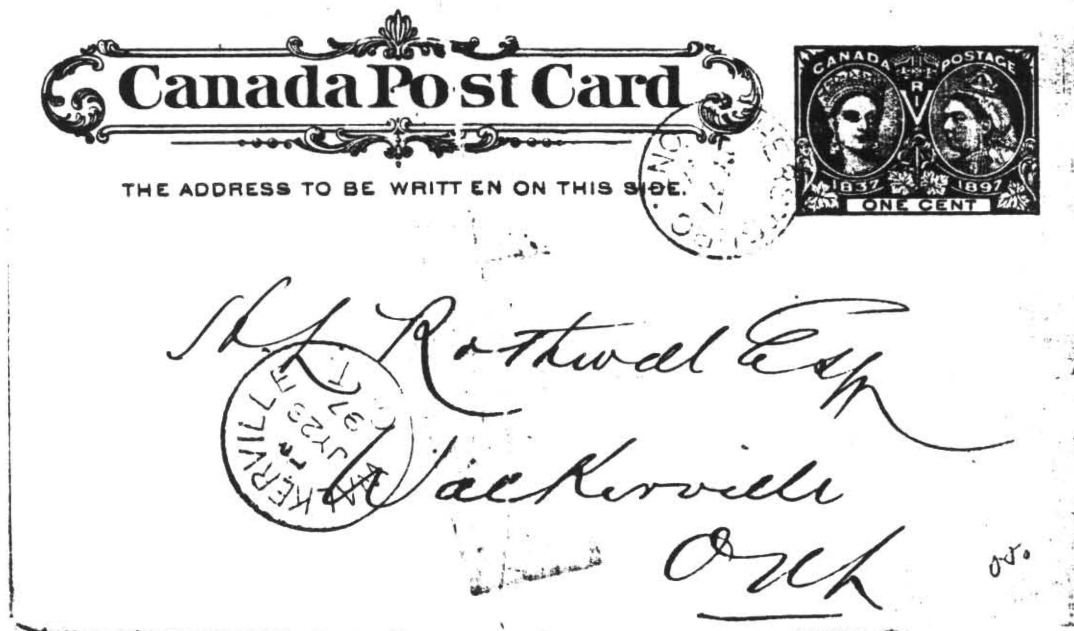 Canada Post Card
THE ADDRESS TO BE WRITTEN ON THIS SIDE.
CANADA POSTAGE
V R I
1837 1897
ONE CENT
Rothwell Esq
WALKERVILLE
JY 29
97
Walkerville
Ont